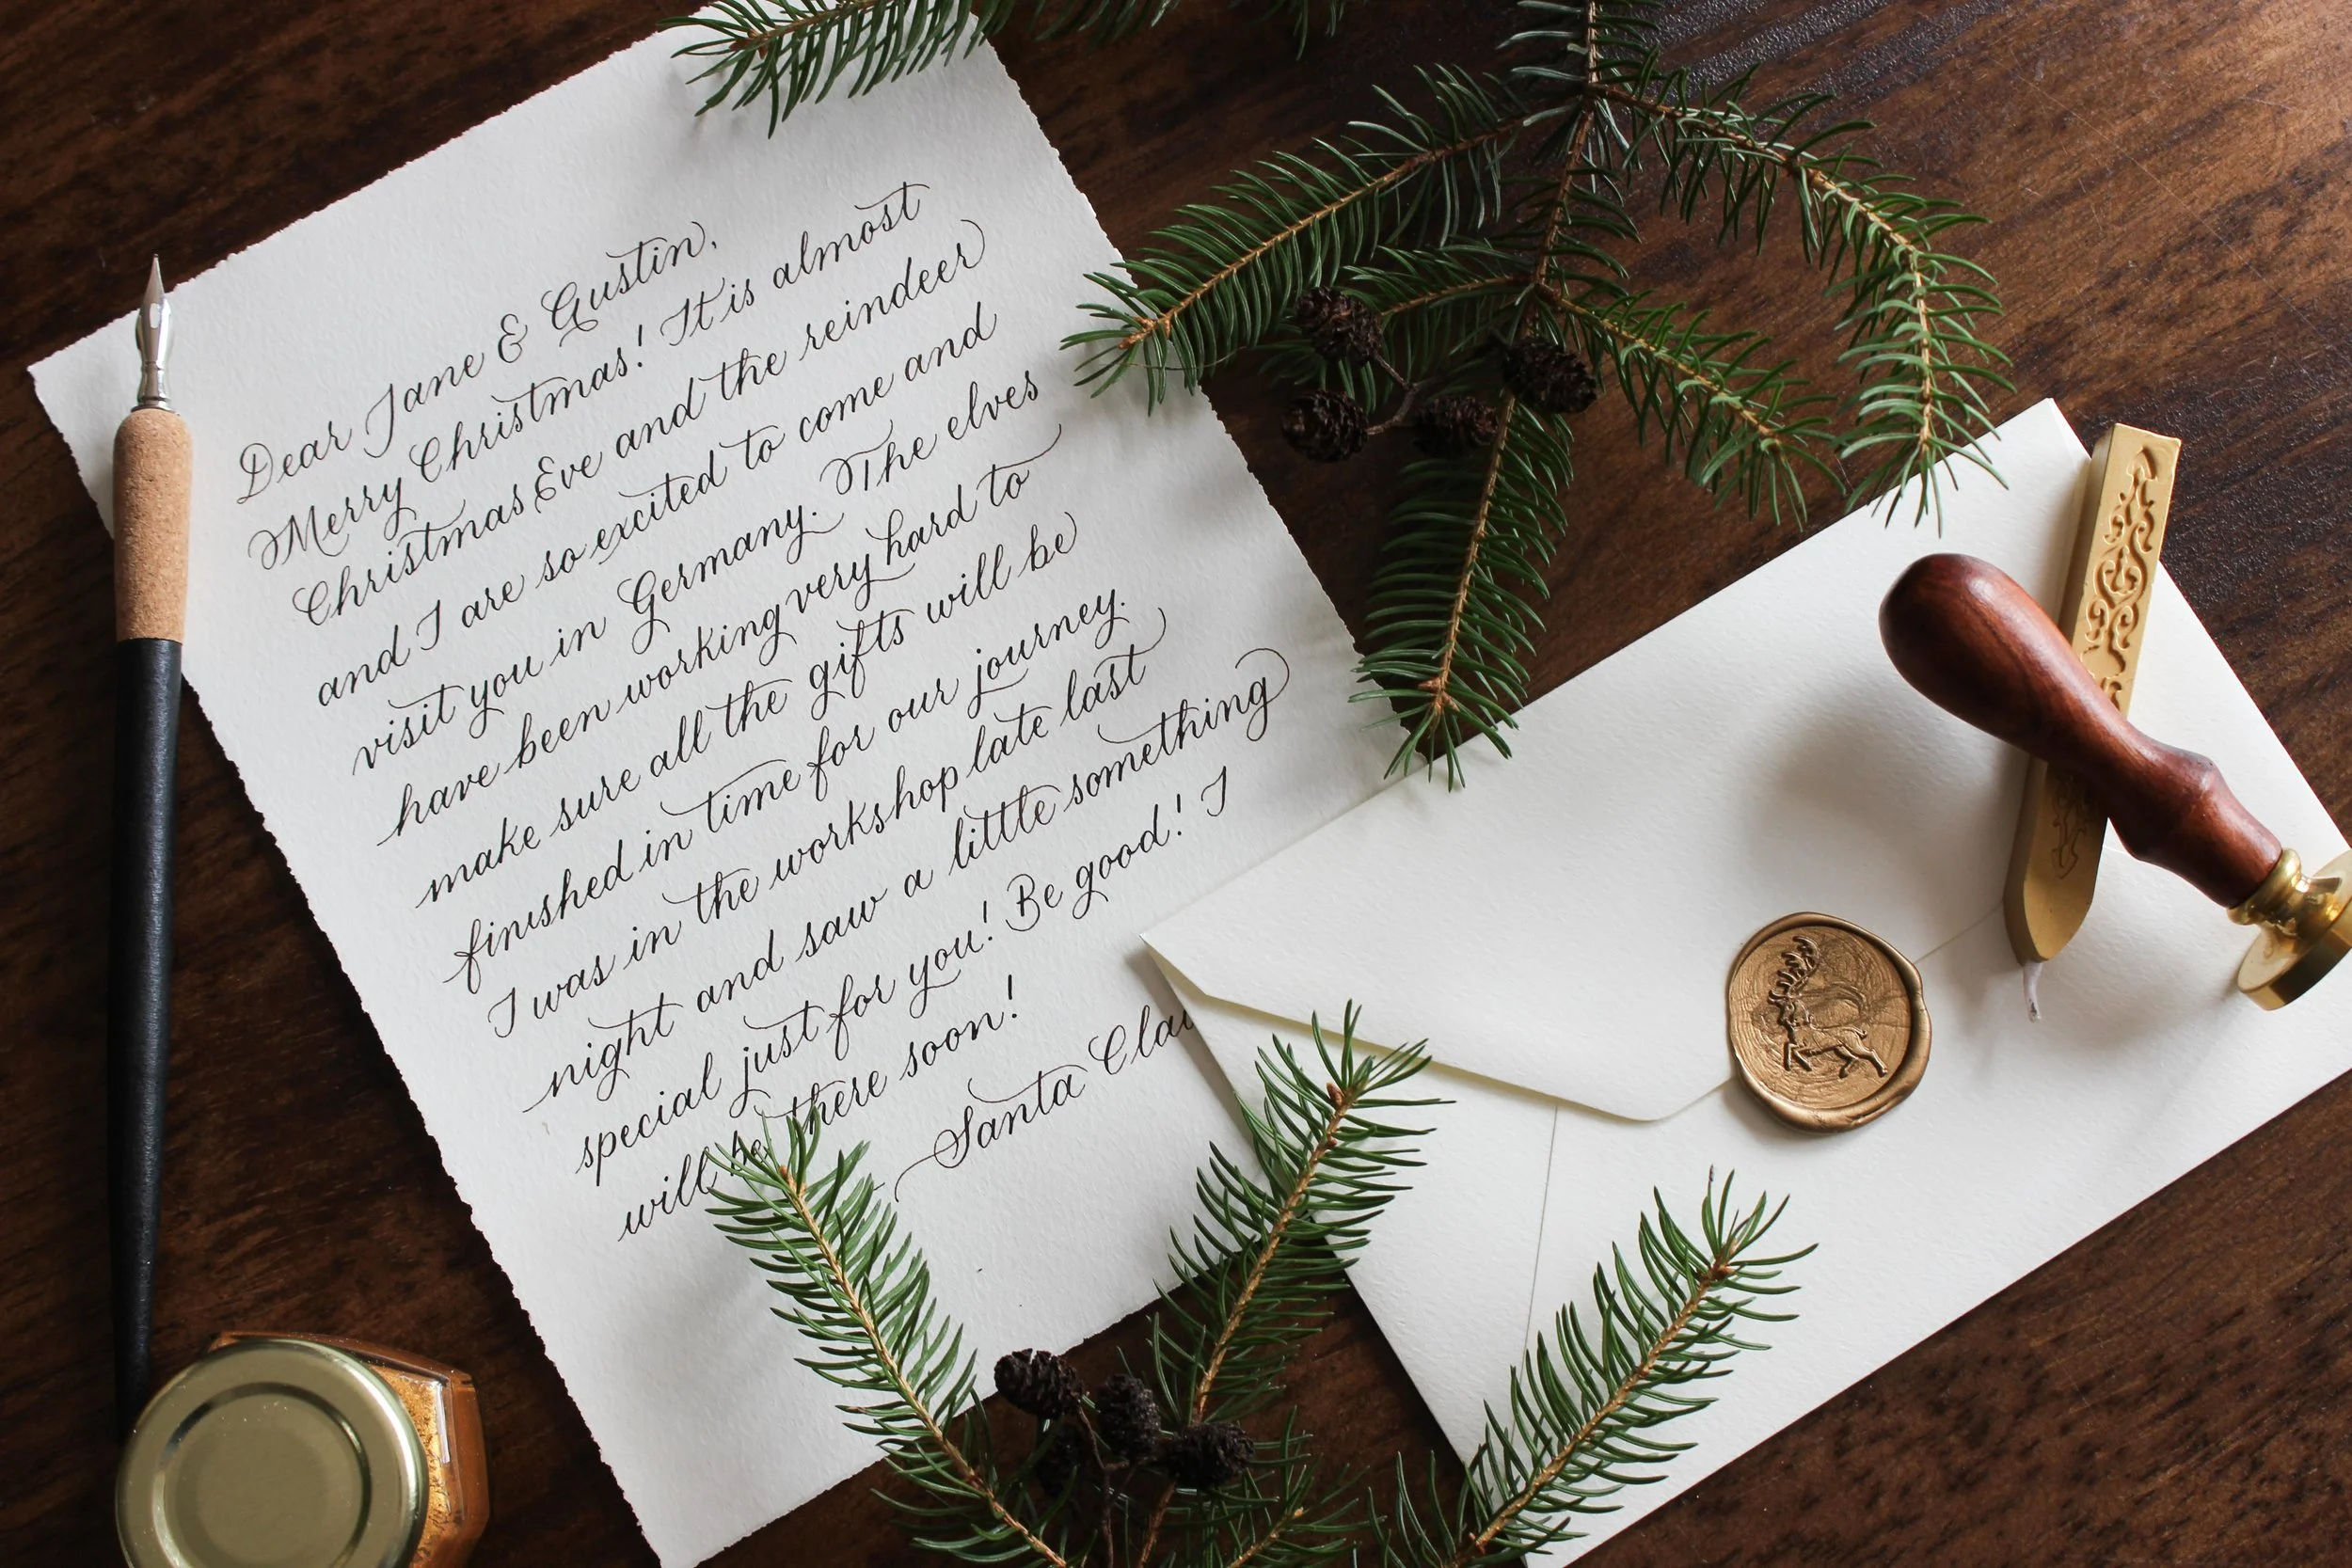 Dear Jane & Austin,
Merry Christmas! It is almost
Christmas Eve and the reindeer
and I are so excited to come and
visit you in Germany. The elves
have been working very hard to
make sure all the gifts will be
finished in time for our journey.
I was in the workshop late last
night and saw a little something
special just for you! Be good! I
will be there soon!
Santa Clau